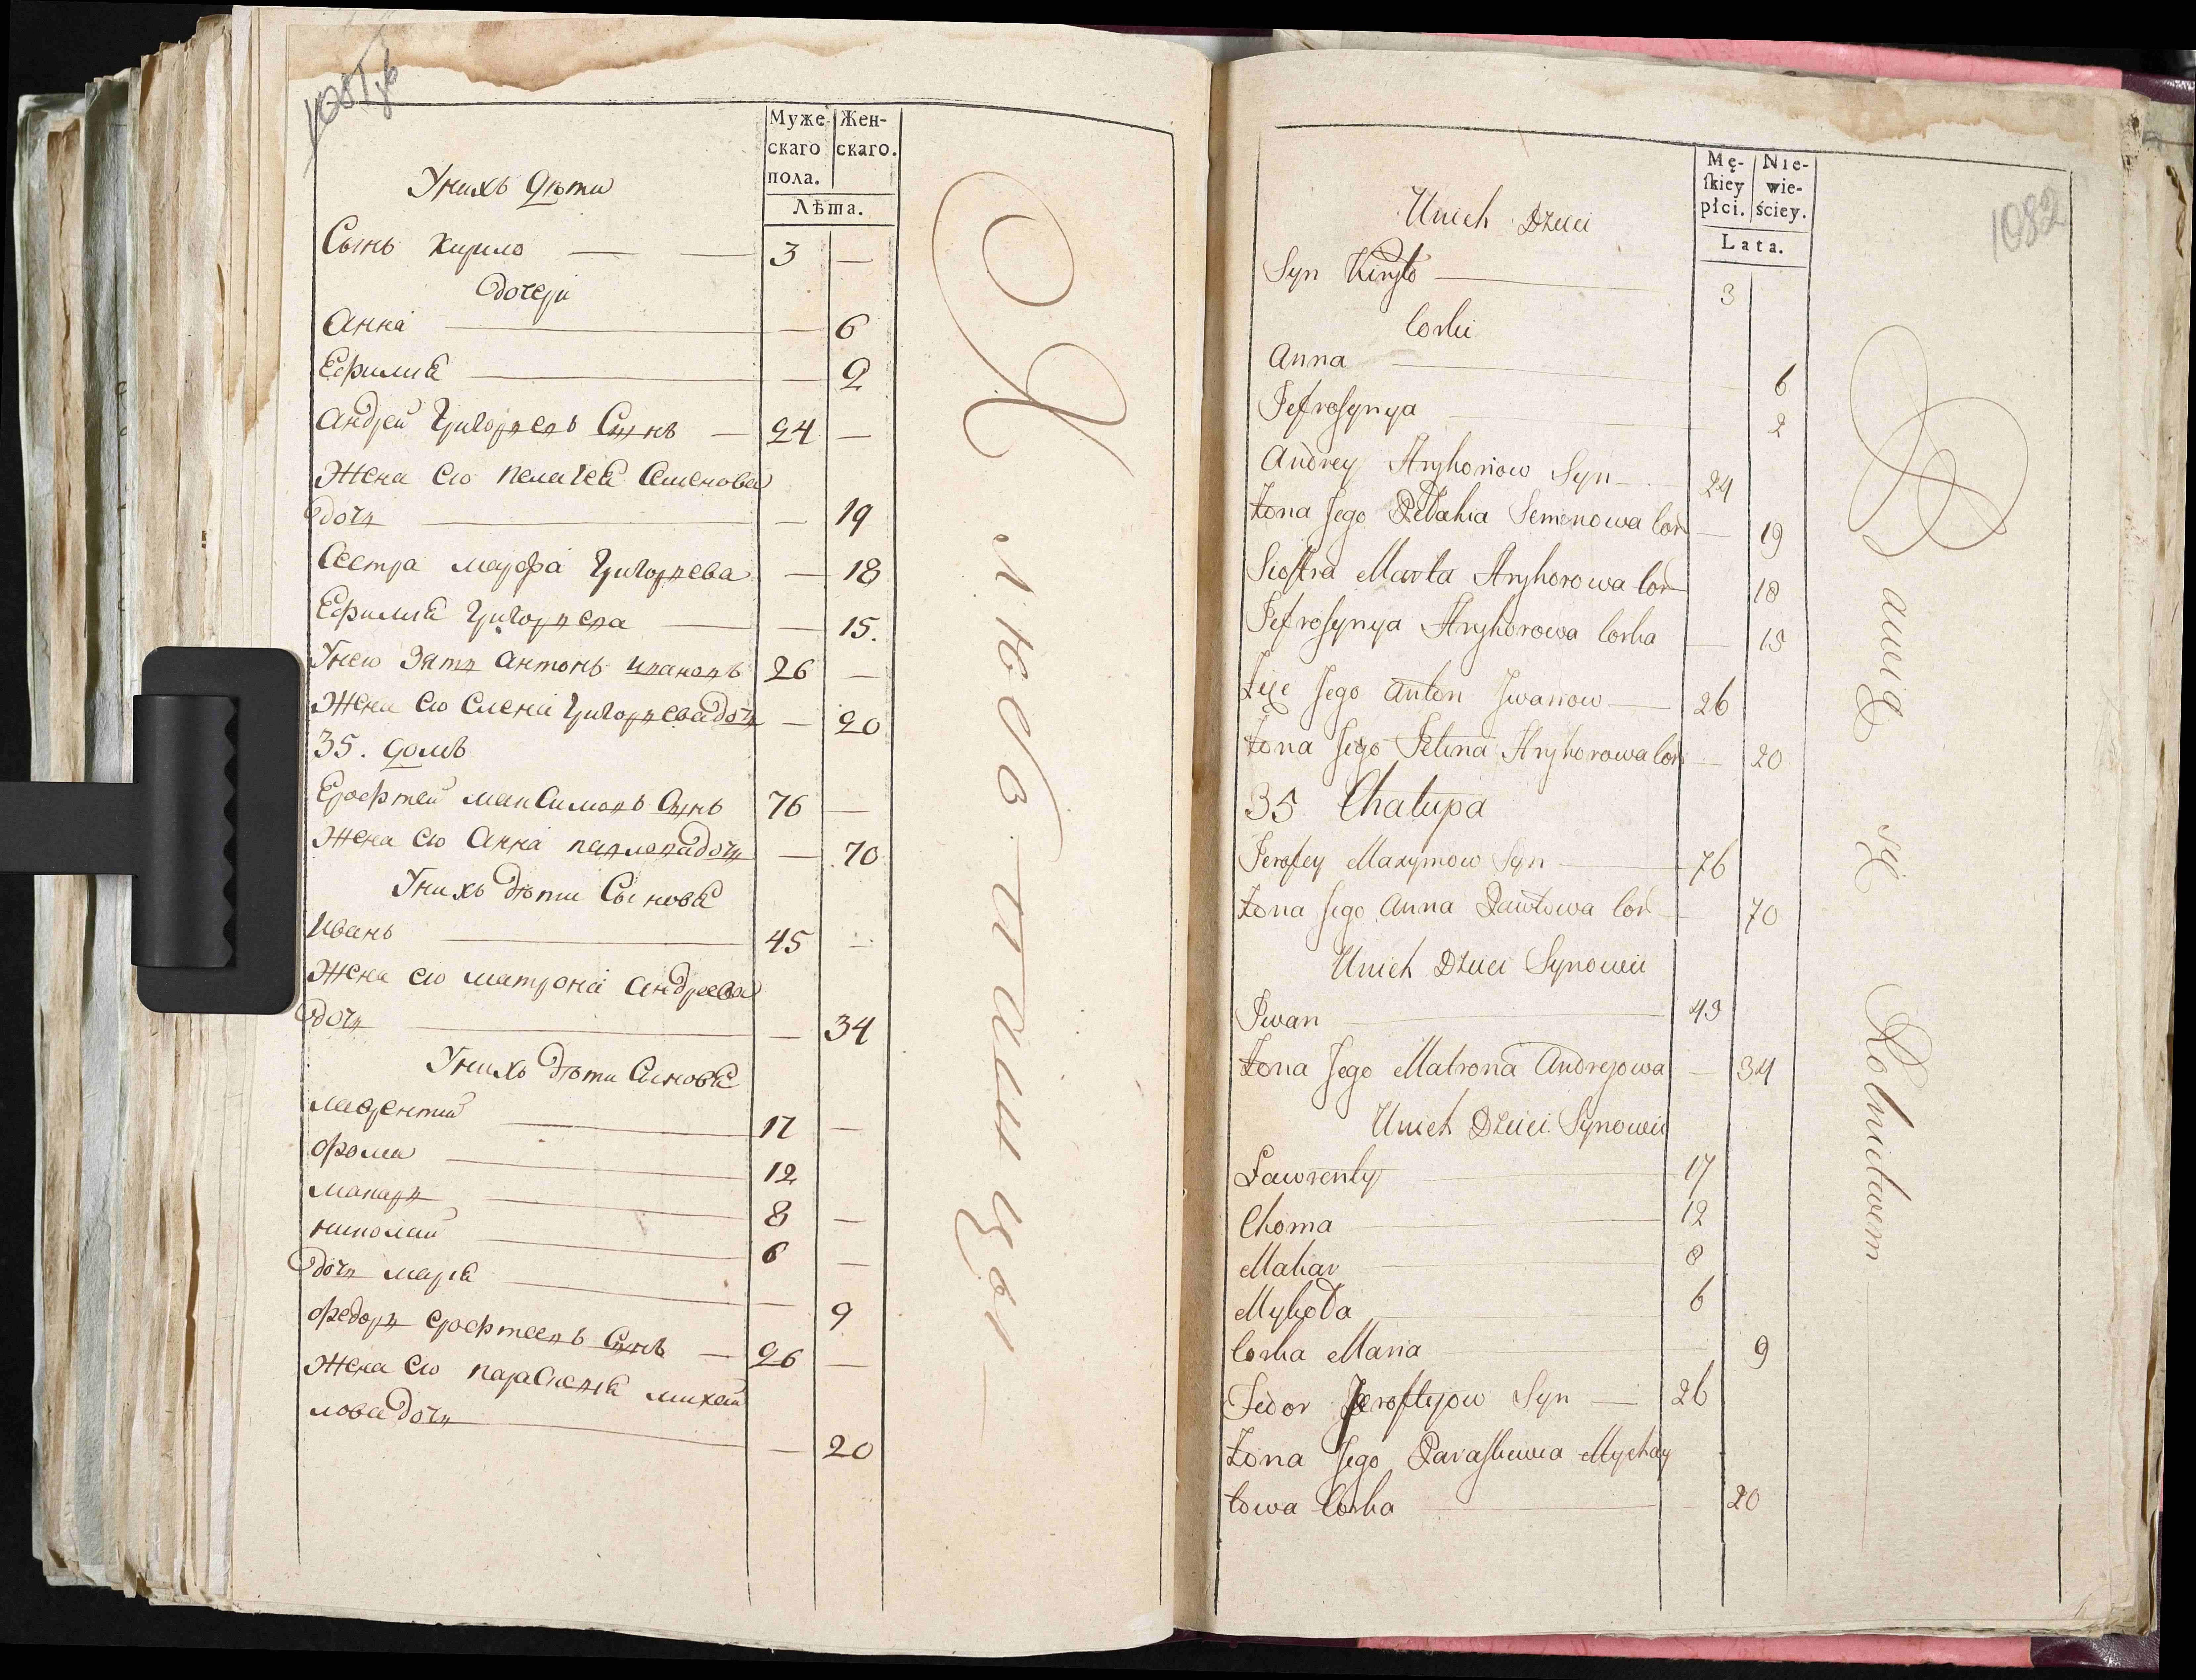 1081 об
Муже-
скаго
пола.
Жен-
скаго.
Лѣта.
Унихъ дѣти
Сынъ Кирило — — 3 —
дочери
Анна — — 6
Ефимия — — 2
Андрей Григорьевъ Сынъ — 24 —
Жена его Пелагея Семенова
дочь — — 19
Сестра Марфа Григорьева — 18
Ефимия Григорьева — — 15.
Унего Зять Антонъ Ивановъ 26 —
Жена его Елена Григорьева дочь — 20
35. домъ
Ерофтей Максимовъ Сынъ 76 —
Жена его Анна Павлова дочь — 70
Унихъ дѣти Сыновья
Иванъ — 45 —
Жена его Матрона Андреева
дочь — — 34
Унихъ дѣти Сыновья
Лаврентий — 17 —
Фома — 12
Макаръ — 8 —
Николай — 6 —
дочь Мария — — 9
Федоръ Ерофтеевъ Сынъ — 26 —
Жена его Параскевия Михай
лова дочь — — 20
Хлебопашцы —
1082
Mę-
ſkiey
płci.
Nie-
wie-
ściey.
Lata.
Unich Dzieci
Syn Kiryło — 3
Corki
Anna — 6
Jefrosynya — 2
Andrey Hryhoriow Syn — 24
Żona Jego Pelahia Semenowa Cor — 19
Siostra Marta Hryhorowa Cor 18
Jefrosynya Hryhorowa Corka — 15
Jego Anton Jwanow — 26
Żona Jego Jelena Hryhorowa Cor — 20
35 Chałupa
Jerofey Maxymow Syn — 76
Żona Jego Anna Pawłowa Cor — 70
Unich Dzieci Synowie
Jwan — 45
Żona Jego Matrona Andrejowa — 34
Unich Dzieci Synowie
Ławrenty — 17
Choma — 12
Makar — 8
Mykoła — 6
Corka Maria — 9
Fedor Jeroftejow Syn — 26
Żona Jego Paraskiewia Mychay
łowa Corka — 20
Bawią się Rolnictwem —